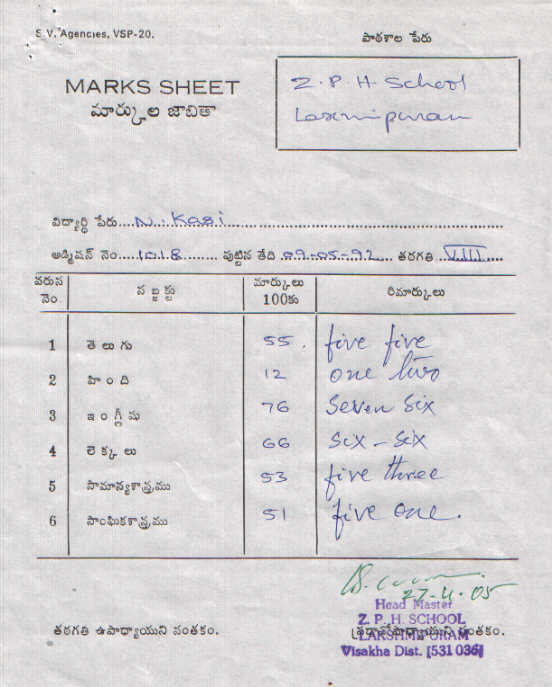 S.V. Agencies, VSP-20.
పాఠశాల పేరు
MARKS SHEET
మార్కుల జాబితా
Z. P. H. School
Laxmipuram
విద్యార్థి పేరు.... N. Kasi
అడ్మిషన్ నెం....1018........ పుట్టిన తేది .....-05-.... తరగతి ..VIII....
వరుస నెం. సబ్జక్టు మార్కులు 100కు రిమార్కులు
1 తెలుగు 55. five five
2 హింది 12 one two
3 ఇంగ్లీషు 76 Seven Six
4 లెక్కలు 66 Six - Six
5 సామాన్యశాస్త్రము 53 five three
6 సాంఘికశాస్త్రము 51 five one.
27-4-05
Head Master
Z. P. H. SCHOOL
తరగతి ఉపాధ్యాయుని సంతకం. ప్రధానోపాధ్యాయుని సంతకం.
LAKSHMIPURAM
Visakha Dist. [531 036]